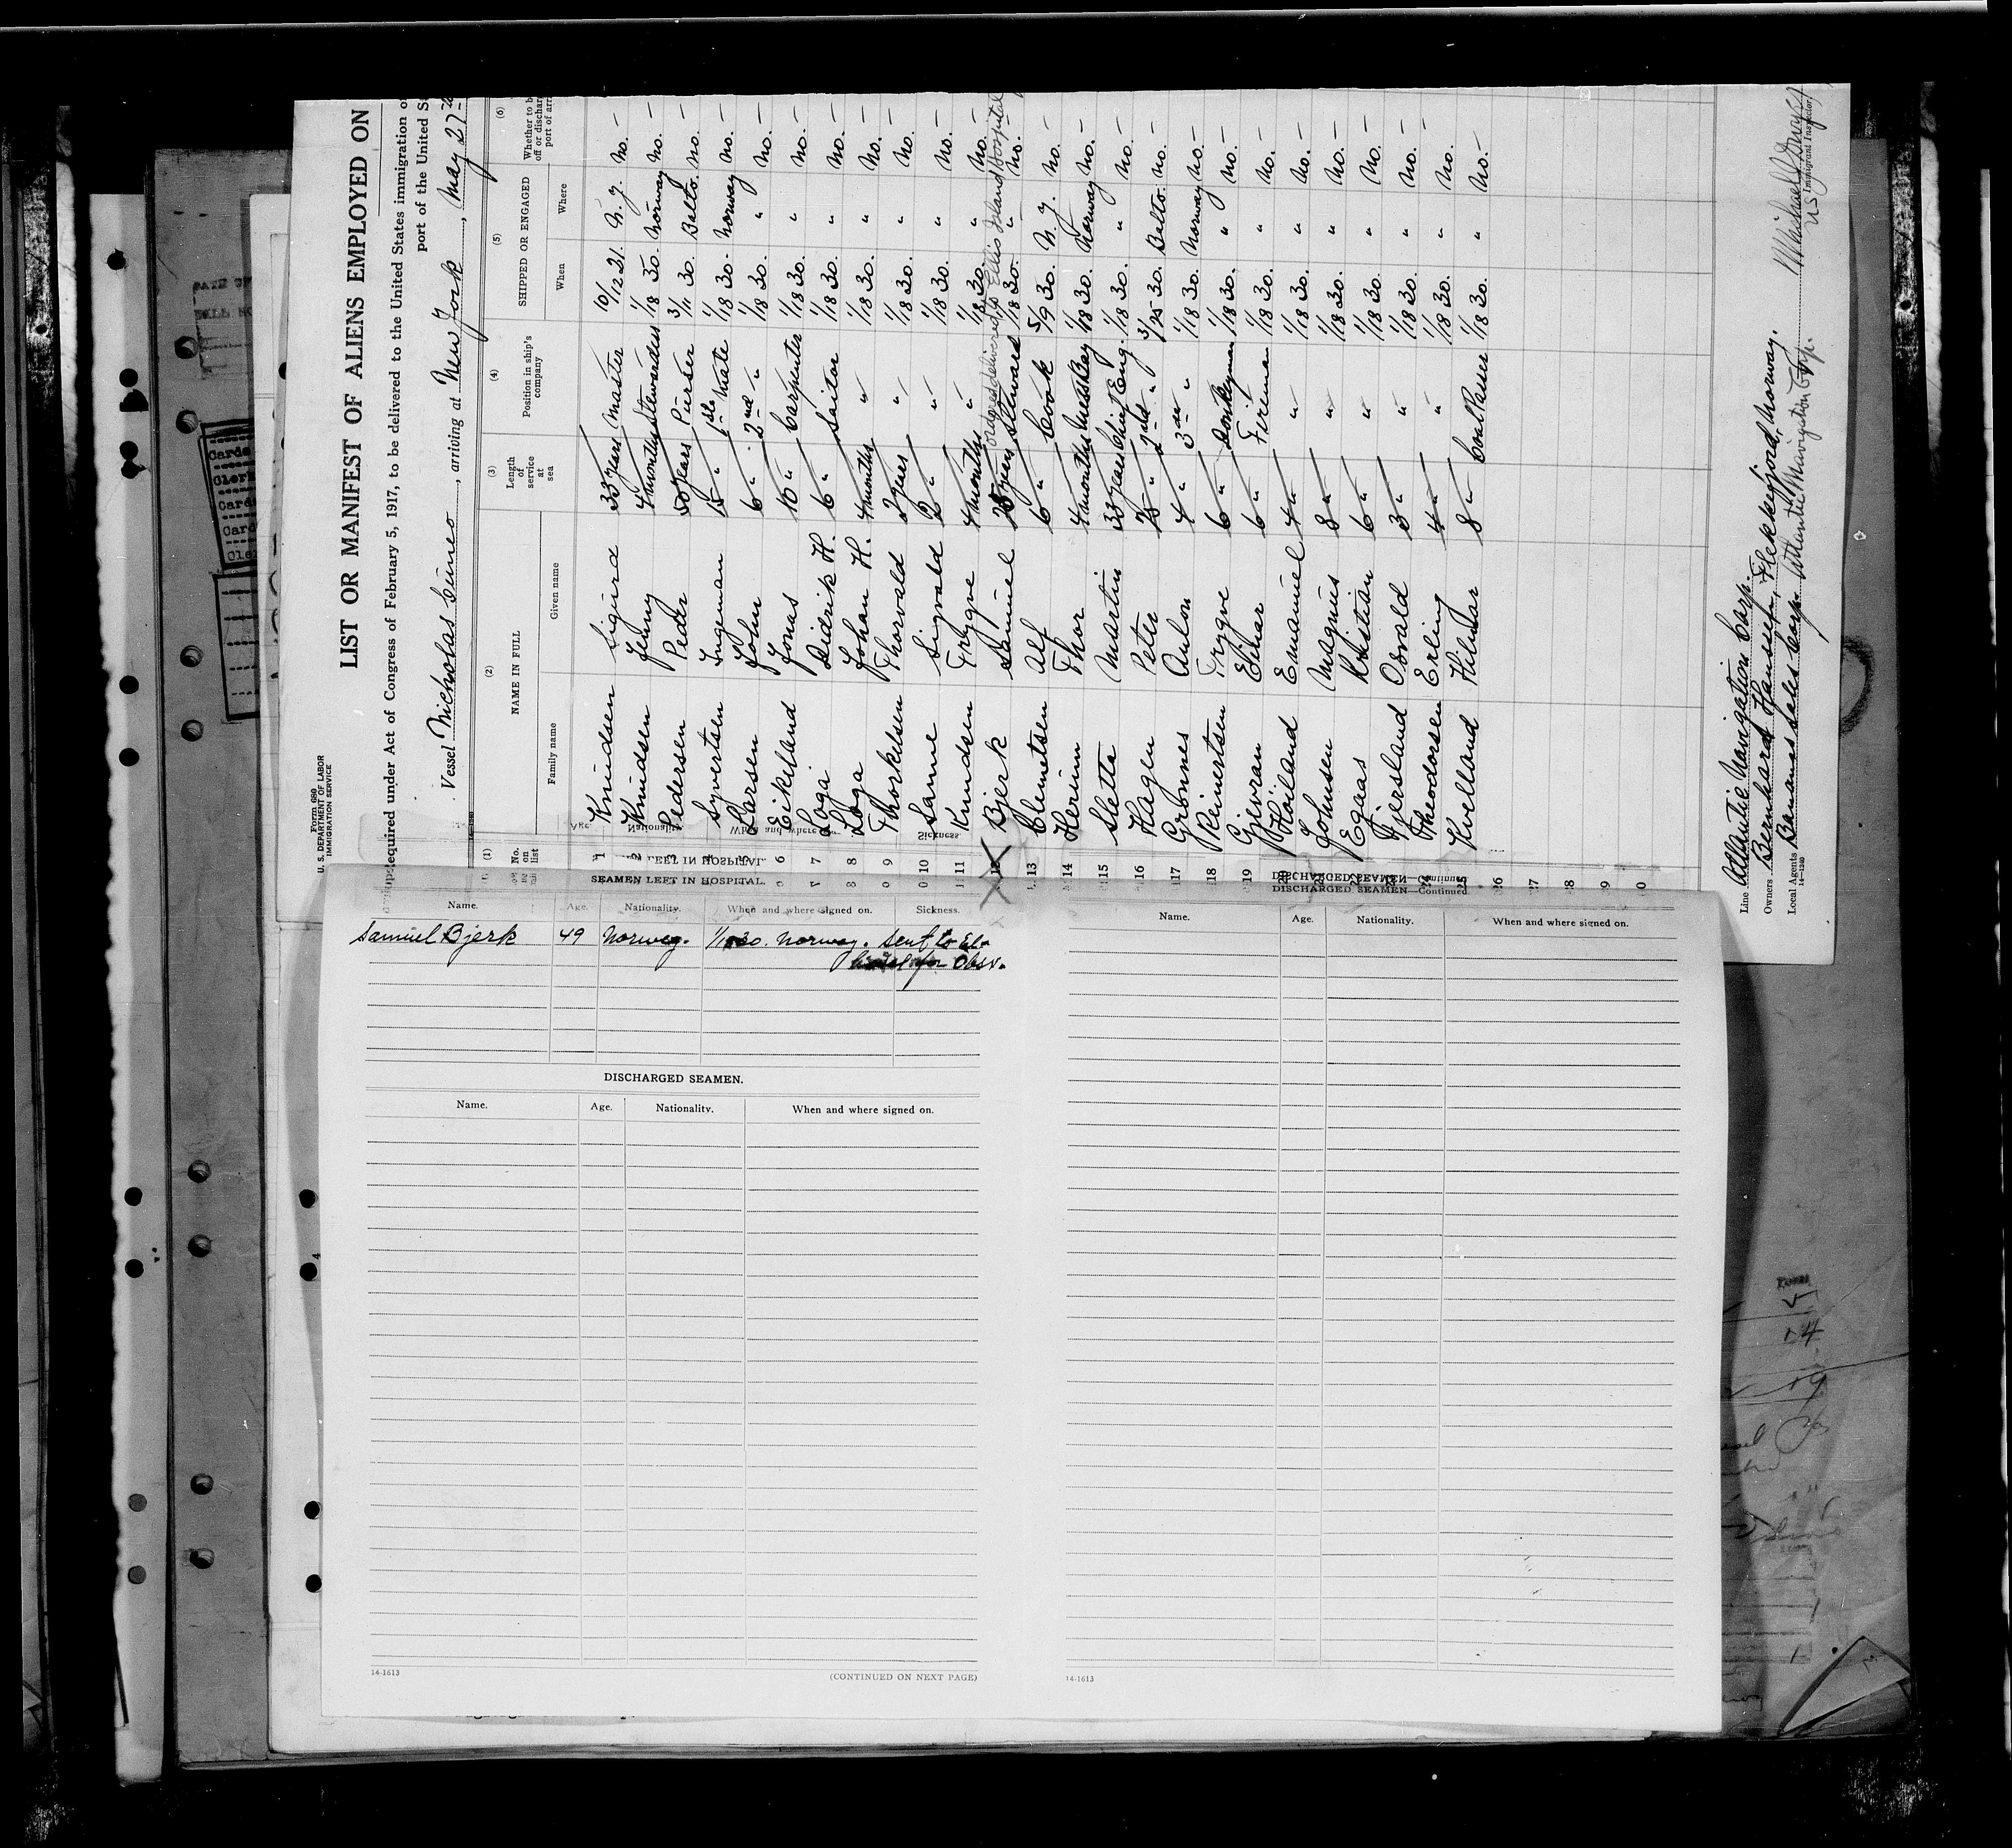 Form 680
U. S. DEPARTMENT OF LABOR
IMMIGRATION SERVICE
LIST OR MANIFEST OF ALIENS EMPLOYED ON
Required under Act of Congress of February 5, 1917, to be delivered to the United States immigration
port of the United
Vessel Nicholas Cuneo, arriving at New York, May 27th
(1) (2) (3) (4) (5) (6)
No. on list NAME IN FULL Length of service at sea Position in ship's company SHIPPED OR ENGAGED
Family name Given name When Where
1 Knudsen Sigurd 33 years Master 10/12 21. N.Y. No. —
2 Knudsen Jenny 4 months Stewardess 1/18 30. Norway No. —
3 Pedersen Peder 50 years Purser 3/11 30. Balto. No. —
4 Syvertsen Ingeman 15 " 1st Mate 1/18 30. Norway No. —
5 Larsen John 6 " 2nd " 1/18 30. " No. —
6 Eikeland Jonas 10 " Carpenter 1/18 30. " No. —
7 Loga Didrik H. 6 " Sailor 1/18 30. " No. —
8 Loga Johan H. 4 months " 1/18 30. " No. —
9 Thorkelsen Thorvald 2 years " 1/18 30. " No. —
10 Sanne Sigvald 2 " " 1/18 30. " No. —
11 Knudsen Trygve 4 months " 1/18 30. " No. —
delivered to Ellis Island Hospital
12 Bjerk Samuel years Steward 1/18 30. " No. —
13 Clemetsen Alf 6 " Cook 5/9 30. N.Y. No. —
14 Herium Thor 4 months Mess Boy 1/18 30. Norway No. —
15 Sletta Martin 33 years Chief Eng. 1/18 30. " No. —
16 Hagen Peter 25 " 2nd " 3/25 30. Balto. No. —
17 Gronnes Anton 4 " 3rd " 1/18 30. Norway No. —
18 Reinertsen Trygve 6 " Donkeyman 1/18 30. " No. —
19 Gjevran Einar 6 " Fireman 1/18 30. " No. —
20 Hoiland Emanuel 4 " " 1/18 30. " No. —
21 Johnsen Magnus 8 " " 1/18 30. " No. —
22 Egaas Kristian 6 " " 1/18 30. " No. —
23 Fjersland Osvald 3 " " 1/18 30. " No. —
24 Theodorsen Erling 4 " " 1/18 30. " No. —
25 Kvelland Hilmar 8 " Coal Passer 1/18 30. " No. —
26
27
Line Atlantic Navigation Corp.
Owners Bernhard Hanssen, Flekkefjord, Norway.
Local Agents Bananas Sales Corp. Atlantic Navigation Corp.
14-1240
Immigrant Inspector.
SEAMEN LEFT IN HOSPITAL.
Name. Age. Nationality. When and where signed on. Sickness.
Samuel Bjerk 49 Norweg. 1/18 30. Norway. Sent to El.
for Obsv.
DISCHARGED SEAMEN.
Name. Age. Nationality. When and where signed on.
14-1613
(CONTINUED ON NEXT PAGE)
DISCHARGED SEAMEN—Continued
Name. Age. Nationality. When and where signed on.
14-1613